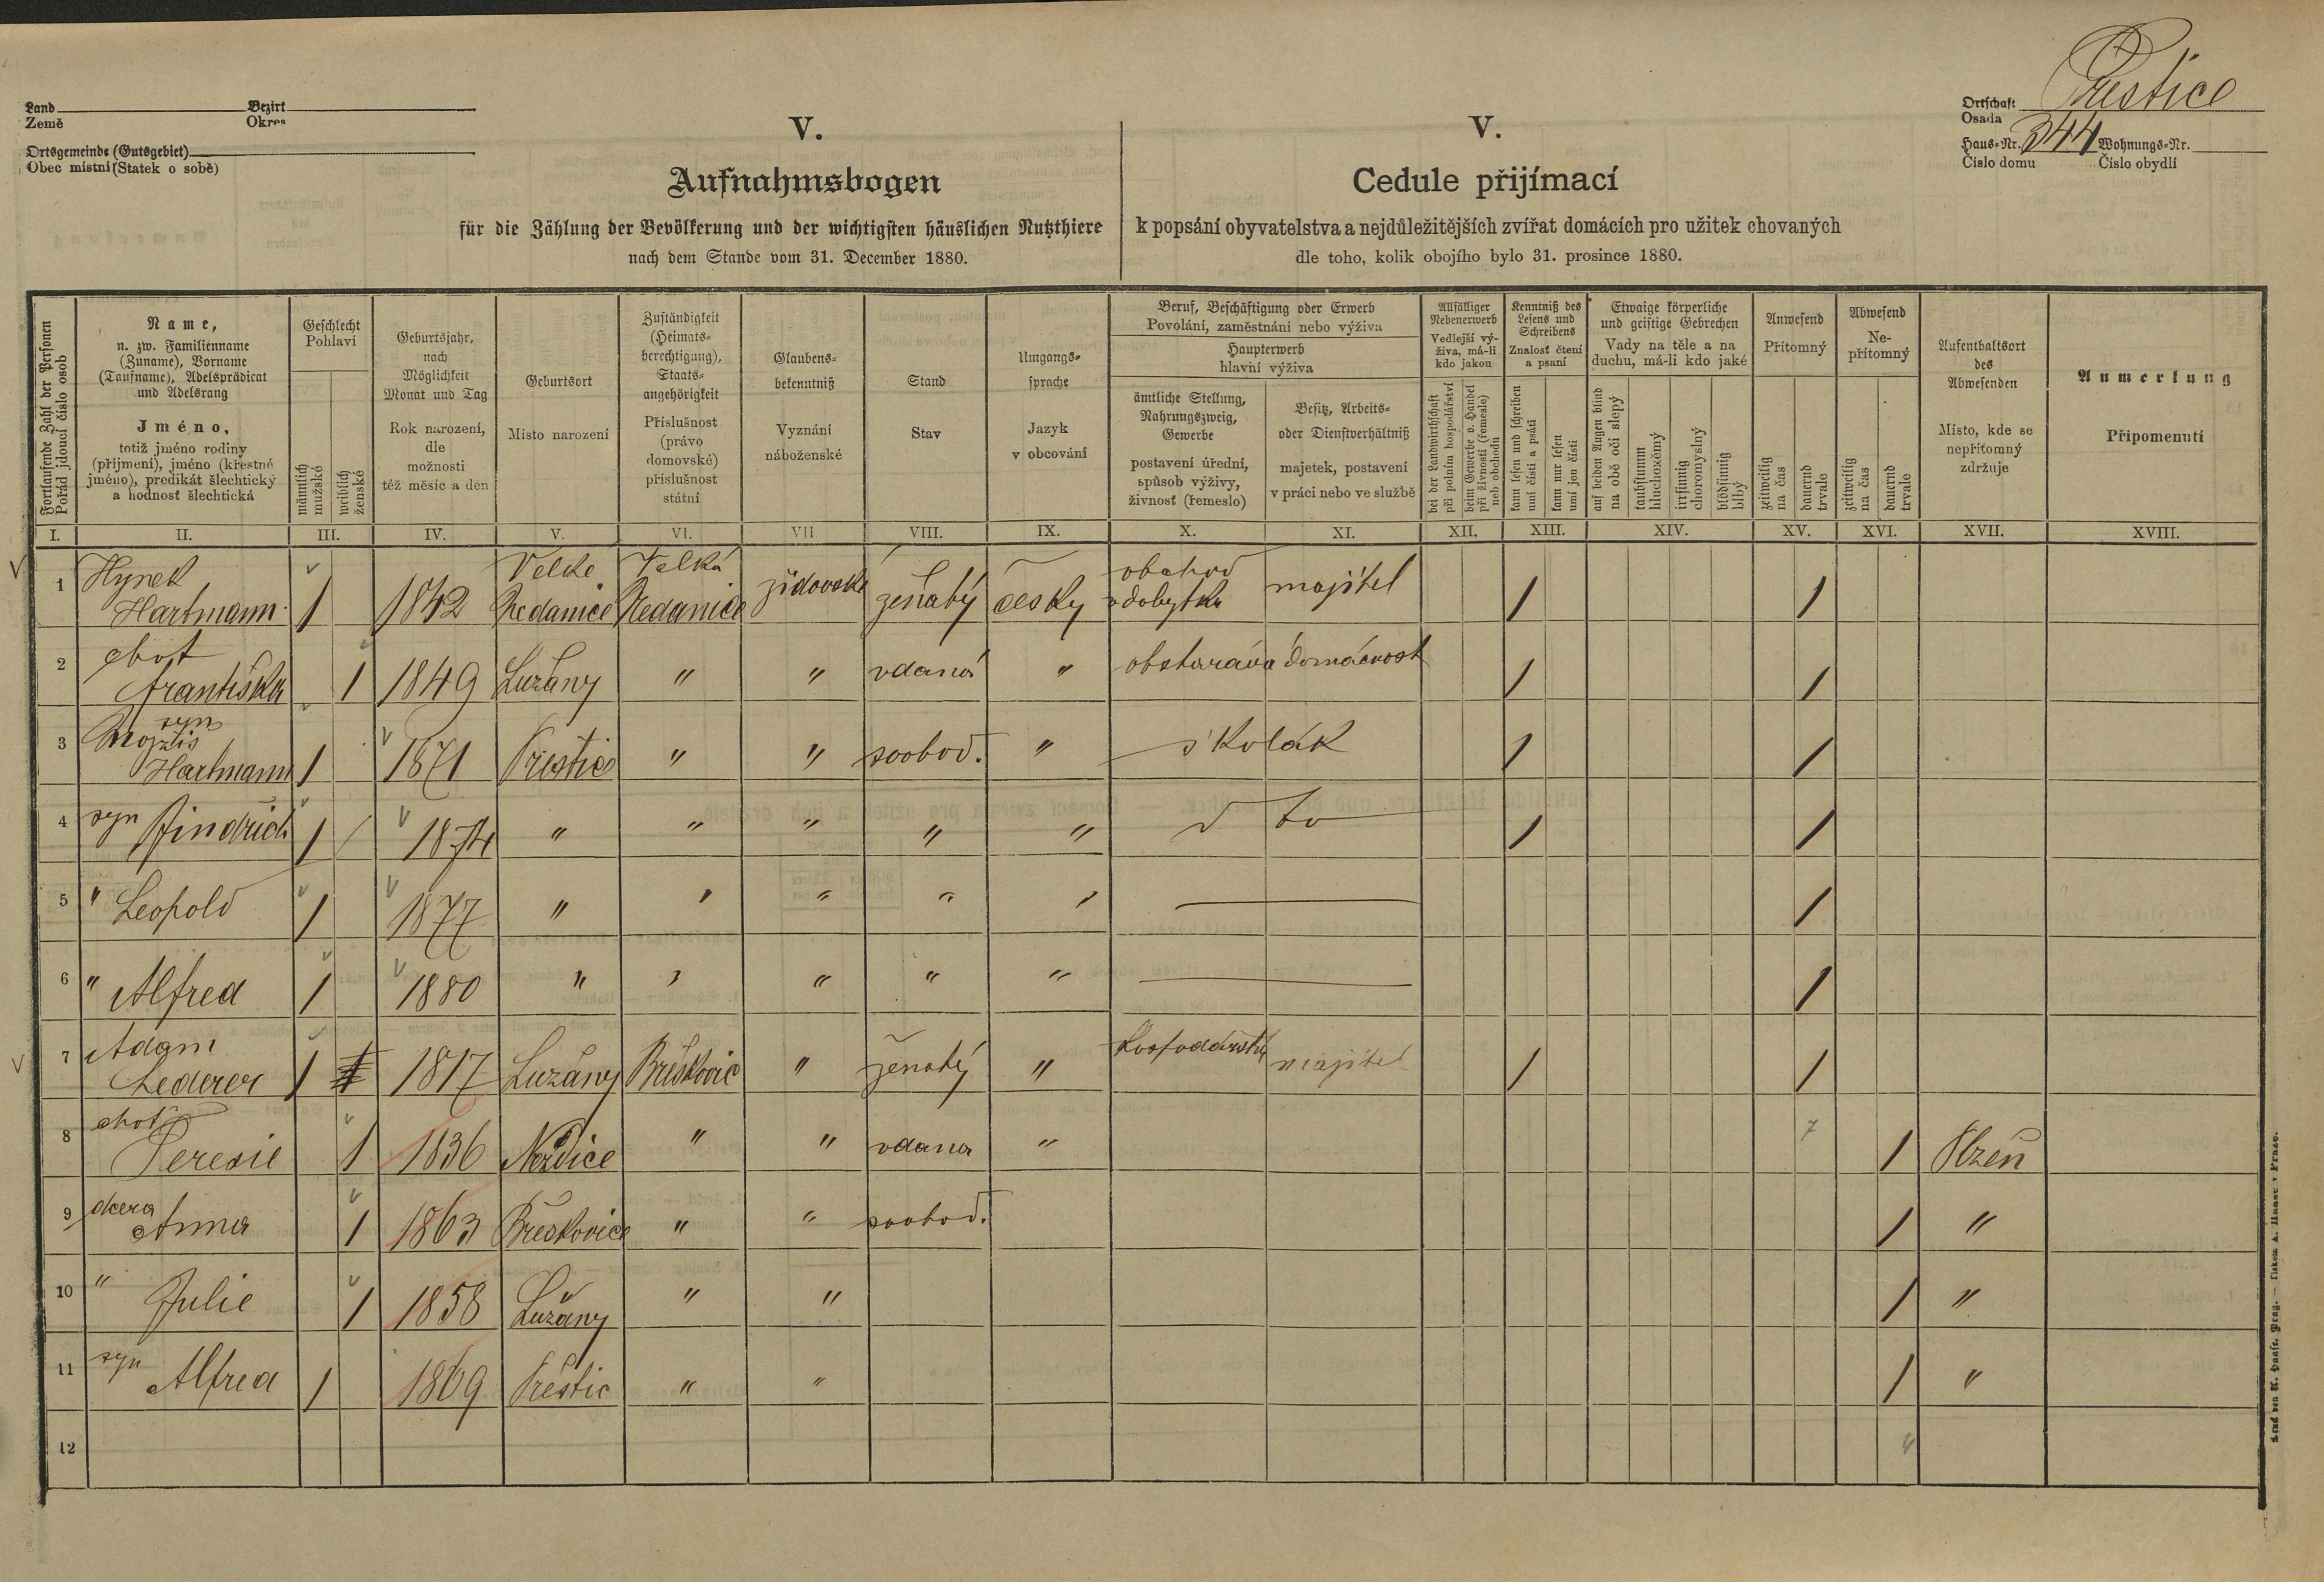 Land Bezirk
Země Okres
Ortsgemeinde (Gutsgebiet)
Obec místní (Statek o sobě)
V.
Aufnahmsbogen
für die Zählung der Bevölkerung und der wichtigsten häuslichen Nutzthiere
nach dem Stande vom 31. December 1880.
V.
Cedule přijímací
k popsání obyvatelstva a nejdůležitějších zvířat domácích pro užitek chovaných
dle toho, kolik obojího bylo 31. prosince 1880.
Ortschaft Přestice
Osada
Haus-Nr. 344 Wohnungs-Nr.
Číslo domu Číslo obydlí
Fortlaufende Zahl der Personen
Pořád jdoucí číslo osob
Name,
u. zw. Familienname
(Zuname), Vorname
(Taufname), Adelsprädicat
und Adelsrang
Jméno,
totiž jméno rodiny
(příjmení), jméno (křestné
jméno), predikát šlechtický
a hodnosť šlechtická
Geschlecht
Pohlaví
männlich
mužské
weiblich
ženské
Geburtsjahr,
nach
Möglichkeit
Monat und Tag
Rok narození,
dle
možnosti
též měsíc a den
Geburtsort
Místo narození
Zuständigkeit
(Heimats-
berechtigung),
Staats-
angehörigkeit
Příslušnost
(právo
domovské)
příslušnost
státní
Glaubens-
bekenntniß
Vyznání
náboženské
Stand
Stav
Umgangs-
sprache
Jazyk
v obcování
Beruf, Beschäftigung oder Erwerb
Povolání, zaměstnání nebo výživa
Haupterwerb
hlavní výživa
ämtliche Stellung,
Nahrungszweig,
Gewerbe
postavení úřední,
spůsob výživy,
živnosť (řemeslo)
Besitz, Arbeits-
oder Dienstverhältniß
majetek, postavení
v práci nebo ve službě
Allfälliger
Nebenerwerb
Vedlejší vý-
živa, má-li
kdo jakou
bei der Landwirthschaft
při polním hospodářství
beim Gewerbe o. Handel
při živnosti (řemeslo)
neb obchodu
Kenntniß des
Lesens und
Schreibens
Znalosť čtení
a psaní
kann lesen und schreiben
umí čísti a psáti
kann nur lesen
umí jen čísti
Etwaige körperliche
und geistige Gebrechen
Vady na těle a na
duchu, má-li kdo jaké
auf beiden Augen blind
na obě oči slepý
taubstumm
hluchoněmý
irrsinnig
choromyslný
blödsinnig
blbý
Anwesend
Přítomný
zeitweilig
na čas
dauernd
trvale
Abwesend
Ne-
přítomný
zeitweilig
na čas
dauernd
trvale
Aufenthaltsort
des
Abwesenden
Místo, kde se
nepřítomný
zdržuje
Anmerkung
Připomenutí
I. II. III. IV. V. VI. VII VIII. IX. X. XI. XII. XIII. XIV. XV. XVI. XVII. XVIII.
1 Hynek Hartmann 1 1842 Velké Zedanice Velká Zedanice židovské ženatý česky obchod dobytka majitel 1 1
2 choť Františka 1 1849 Lužany " " vdaná " obstarává domácnost 1 1
3 syn Mojžíš Hartmann 1 1871 Přestice " " svobod. " školák 1 1
4 syn Jindřich 1 1874 " " " " " dto 1 1
5 " Leopold 1 1877 " " " " " — 1
6 " Alfred 1 1880 " " " " " — 1
7 Adam Lederer 1 1817 Lužany Břéskovic " ženatý " hospodářství majitel 1 1
8 choť Teresie 1 1836 Nezdice " " vdana " 7 1 Plzeň
9 dcera Anna 1 1863 Břeskovice " " svobod. 1 "
10 " Julie 1 1858 Lužany " " 1 "
11 syn Alfred 1 1869 Přestic " " 1 "
12